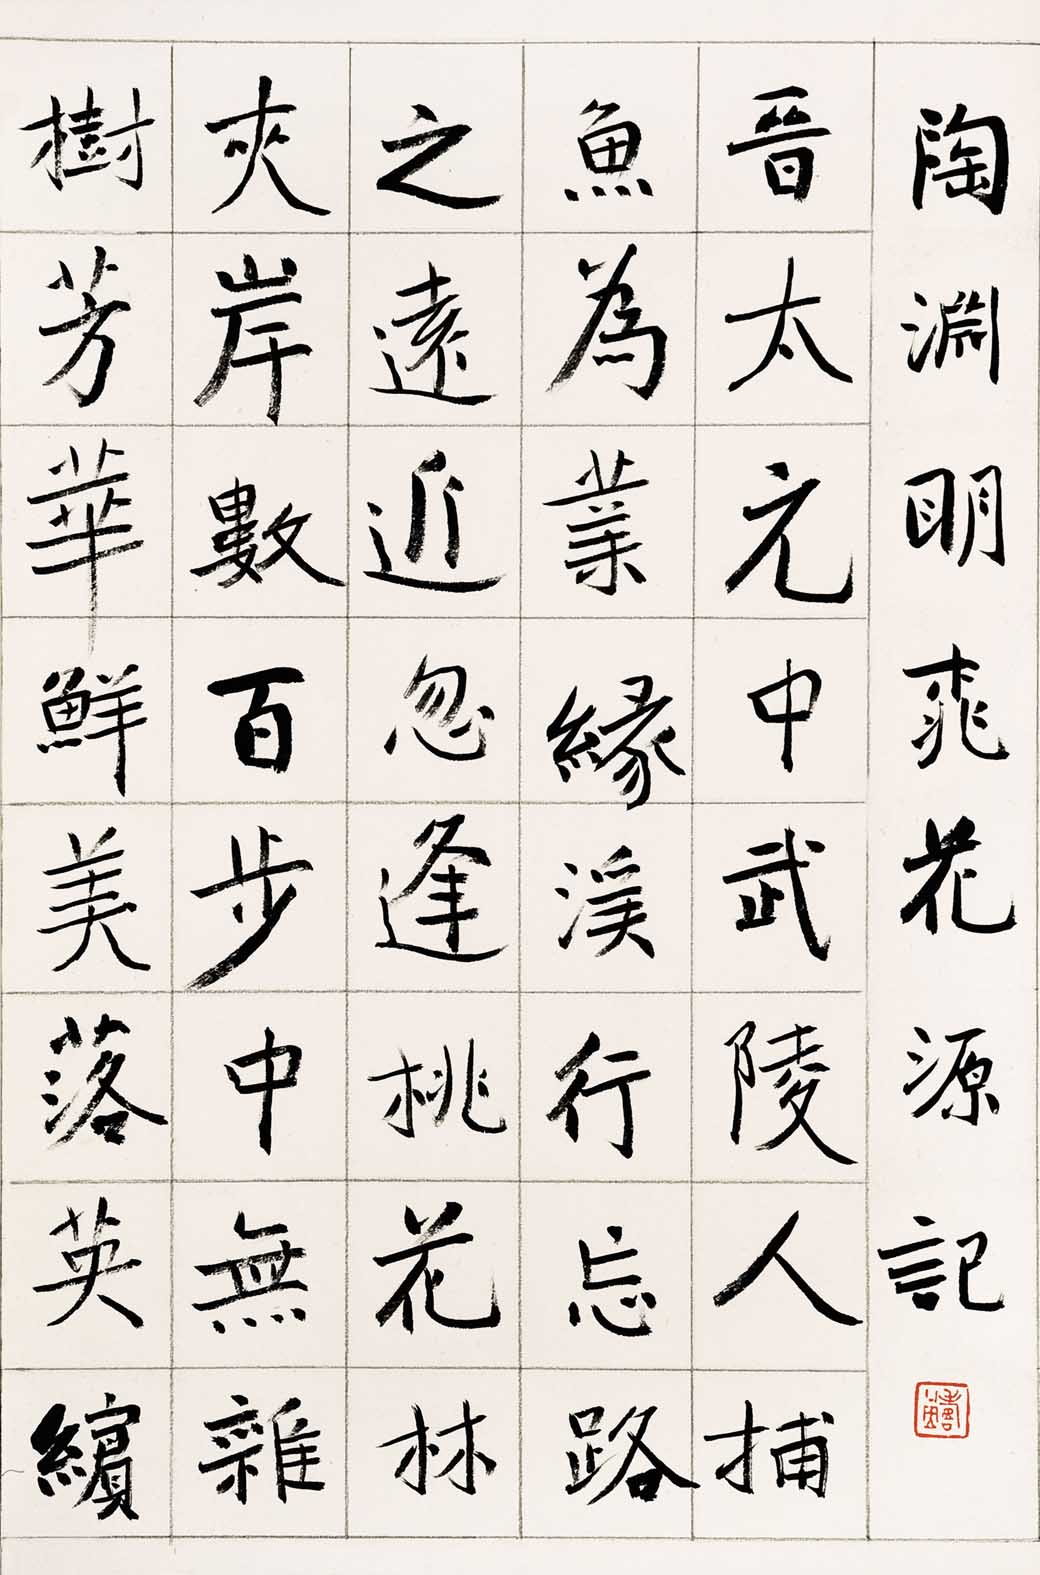 陶淵明桃花源記
晉太元中武陵人捕
魚為業緣溪行忘路
之遠近忽逢桃花林
夾岸數百步中無雜
樹芳華鮮美落英繽